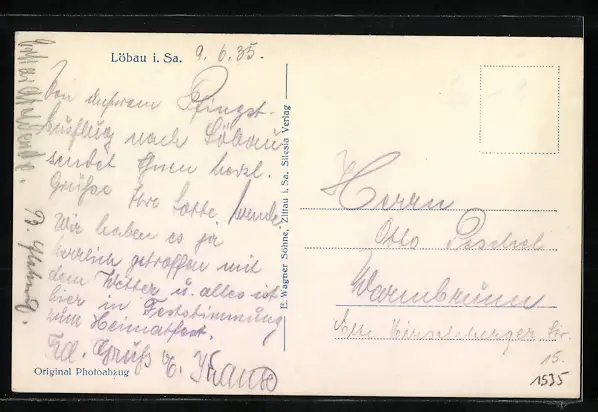 Löbau i. Sa. 9. 6. 35.
Von unserem Pfingst-
Ausflug nach Löbau
sendet Ihnen herzl.
Grüße Ihre Lotte
Wir haben es ja
herrlich getroffen mit
dem Wetter u. alles ist
hier in Feststimmung
zum Heimatfest.
Gruß
Original Photoabzug
E. Wagner Söhne, Zittau i. Sa. Silesia Verlag
Herrn
Otto Peschel
Warmbrunn
Alte Hirschberger Str.
15.
1535